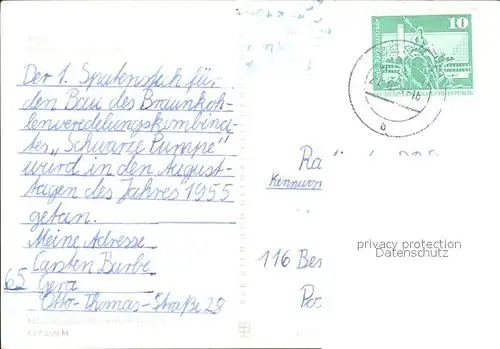 10
Der 1. Spatenstich für
den Bau des Braunkoh-
lenveredelungskombina-
tes „Schwarze Pumpe"
wurd in den August-
tagen des Jahres 1955
getan.
Meine Adresse
Carsten Burbe
65 Gera
Otto-Thomas-Straße 28
Ra
Kennwor
116 Ber
Pos
privacy protection
Datenschutz